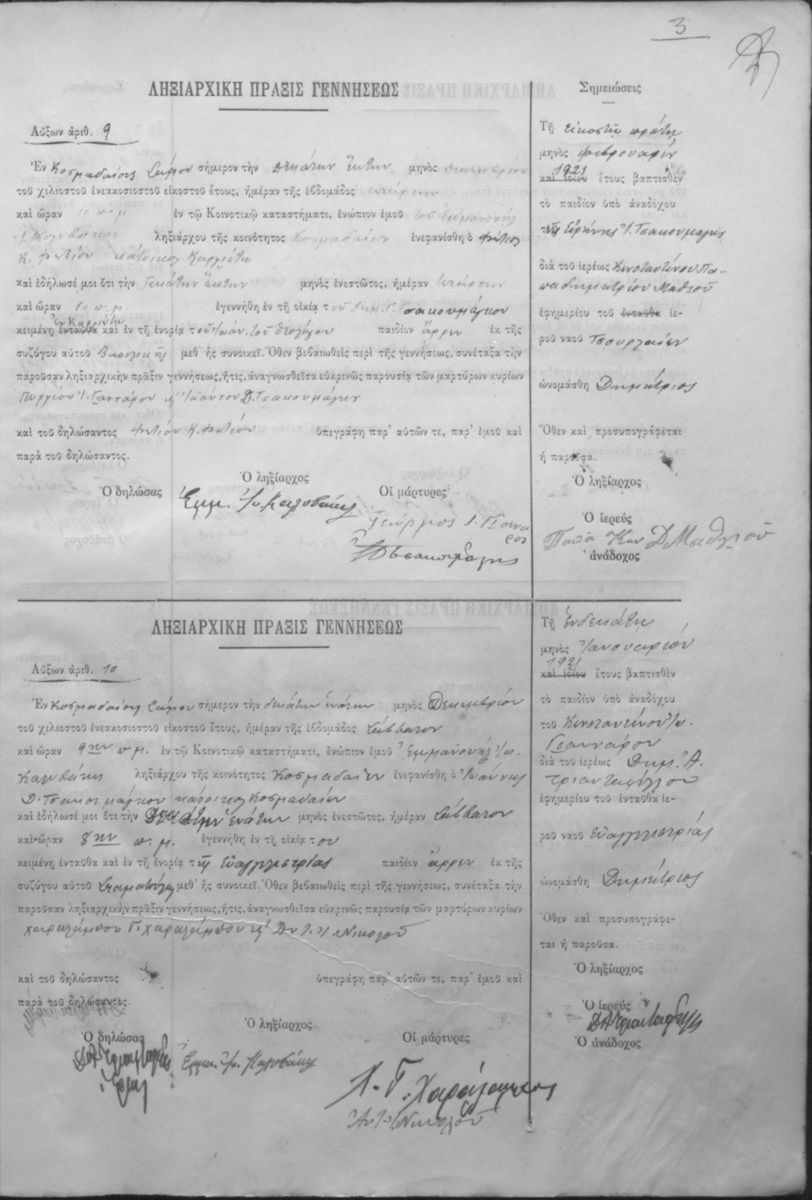 3
ΛΗΞΙΑΡΧΙΚΗ ΠΡΑΞΙΣ ΓΕΝΝΗΣΕΩΣ
Αὔξων ἀριθ. 9
Ἐν Κοσμαδαίοις Σάμου σήμερον τὴν δεκάτην ἕκτην μηνὸς Δεκεμβρίου
τοῦ χιλιοστοῦ ἐνεακοσιοστοῦ εἰκοστοῦ ἔτους, ἡμέραν τῆς ἑβδομάδος
καὶ ὥραν 10 π.μ. ἐν τῷ Κοινοτικῷ καταστήματι, ἐνώπιον ἐμοῦ τοῦ Ἐμμανουὴλ
ληξιάρχου τῆς κοινότητος Κοσμαδαίων ἐνεφανίσθη ὁ Φώτιος
Κ. Φωτίου κάτοικος
καὶ ἐδήλωσέ μοι ὅτι τὴν δεκάτην ἕκτην μηνὸς ἐνεστῶτος, ἡμέραν
καὶ ὥραν 10 π.μ. ἐγεννήθη ἐν τῇ οἰκίᾳ τοῦ Δημ. Γ. Τσακουμάγκου
κειμένῃ ἐνταῦθα καὶ ἐν τῇ ἐνορίᾳ τοῦ Ἰωάν. τοῦ Θεολόγου παιδίον ἄρρεν ἐκ τῆς
συζύγου αὐτοῦ Βασιλικῆς μεθ' ἧς συνοικεῖ. Ὅθεν βεβαιωθεὶς περὶ τῆς γεννήσεως, συνέταξα τὴν
παροῦσαν ληξιαρχικὴν πρᾶξιν γεννήσεως, ἥτις, ἀναγνωσθεῖσα εὐκρινῶς παρουσίᾳ τῶν μαρτύρων κυρίων
Γεωργίου Ι. Γιανναρου κ Ἰωάννου Δ. Τσακουμάγκου
καὶ τοῦ δηλώσαντος Φωτίου Κ. Φωτίου ὑπεγράφη παρ' αὐτῶν τε, παρ' ἐμοῦ καὶ
παρὰ τοῦ δηλώσαντος.
Ὁ δηλώσας Ὁ ληξίαρχος Οἱ μάρτυρες
Ἐμμ. Ἰω. Καλυβάκης
Γεώργιος Ι. Γιανναρος
Σημειώσεις
Τῇ εἰκοστῇ πρώτῃ
μηνὸς Φεβρουαρίου
1921
καὶ ἰδίου ἔτους βαπτισθὲν
τὸ παιδίον ὑπὸ ἀναδόχου
τῆς Εἰρήνης Ι. Τσακουμάγκου
διὰ τοῦ ἱερέως Κωνσταντίνου Πα-
παδημητρίου Μαθιοῦ
ἐφημερίου τοῦ ἐνταῦθα ἱε-
ροῦ ναοῦ
ὠνομάσθη Δημήτριος
Ὅθεν καὶ προσυπογράφεται
ἡ παροῦσα.
Ὁ ληξίαρχος
Ὁ ἱερεύς
Παπα Κων Δ Μαθιοῦ
ἀνάδοχος
ΛΗΞΙΑΡΧΙΚΗ ΠΡΑΞΙΣ ΓΕΝΝΗΣΕΩΣ
Αὔξων ἀριθ. 10
Ἐν Κοσμαδαίοις Σάμου σήμερον τὴν δεκάτην ἐνάτην μηνὸς Δεκεμβρίου
τοῦ χιλιοστοῦ ἐνεακοσιοστοῦ εἰκοστοῦ ἔτους, ἡμέραν τῆς ἑβδομάδος Σάββατον
καὶ ὥραν 9ην π.μ. ἐν τῷ Κοινοτικῷ καταστήματι, ἐνώπιον ἐμοῦ Ἐμμανουὴλ Ἰω.
Καλυβάκης ληξιάρχου τῆς κοινότητος Κοσμαδαίων ἐνεφανίσθη ὁ Ἰωάννης
Δ. Τσακουμάγκου κάτοικος Κοσμαδαίων
καὶ ἐδήλωσέ μοι ὅτι τὴν δεκάτην ἐνάτην μηνὸς ἐνεστῶτος, ἡμέραν Σάββατον
καὶ ὥραν 8ην π.μ. ἐγεννήθη ἐν τῇ οἰκίᾳ του
κειμένῃ ἐνταῦθα καὶ ἐν τῇ ἐνορίᾳ τῆς Εὐαγγελιστρίας παιδίον ἄρρεν ἐκ τῆς
συζύγου αὐτοῦ Σταματούλας μεθ' ἧς συνοικεῖ. Ὅθεν βεβαιωθεὶς περὶ τῆς γεννήσεως, συνέταξα τὴν
παροῦσαν ληξιαρχικὴν πρᾶξιν γεννήσεως, ἥτις, ἀναγνωσθεῖσα εὐκρινῶς παρουσίᾳ τῶν μαρτύρων κυρίων
Χαραλάμπου Γ. Χαραλάμπου Νικολοῦ
καὶ τοῦ δηλώσαντος ὑπεγράφη παρ' αὐτῶν τε, παρ' ἐμοῦ καὶ
παρὰ τοῦ δηλώσαντος.
Ὁ δηλώσας Ὁ ληξίαρχος Οἱ μάρτυρες
Ἐμμ. Ἰω. Καλυβάκης
Χ. Γ. Χαραλάμπους
Νικολοῦ
Τῇ ἑνδεκάτῃ
μηνὸς Ἰανουαρίου
1921
καὶ ἰδίου ἔτους βαπτισθὲν
τὸ παιδίον ὑπὸ ἀναδόχου
τοῦ Κωνσταντίνου Ἰω.
Γιανναρου
διὰ τοῦ ἱερέως Δημ. Α.
Τριανταφύλλου
ἐφημερίου τοῦ ἐνταῦθα ἱε-
ροῦ ναοῦ Εὐαγγελιστρίας
ὠνομάσθη Δημήτριος
Ὅθεν καὶ προσυπογράφε-
ται ἡ παροῦσα.
Ὁ ληξίαρχος
Ὁ ἱερεύς
Ὁ ἀνάδοχος